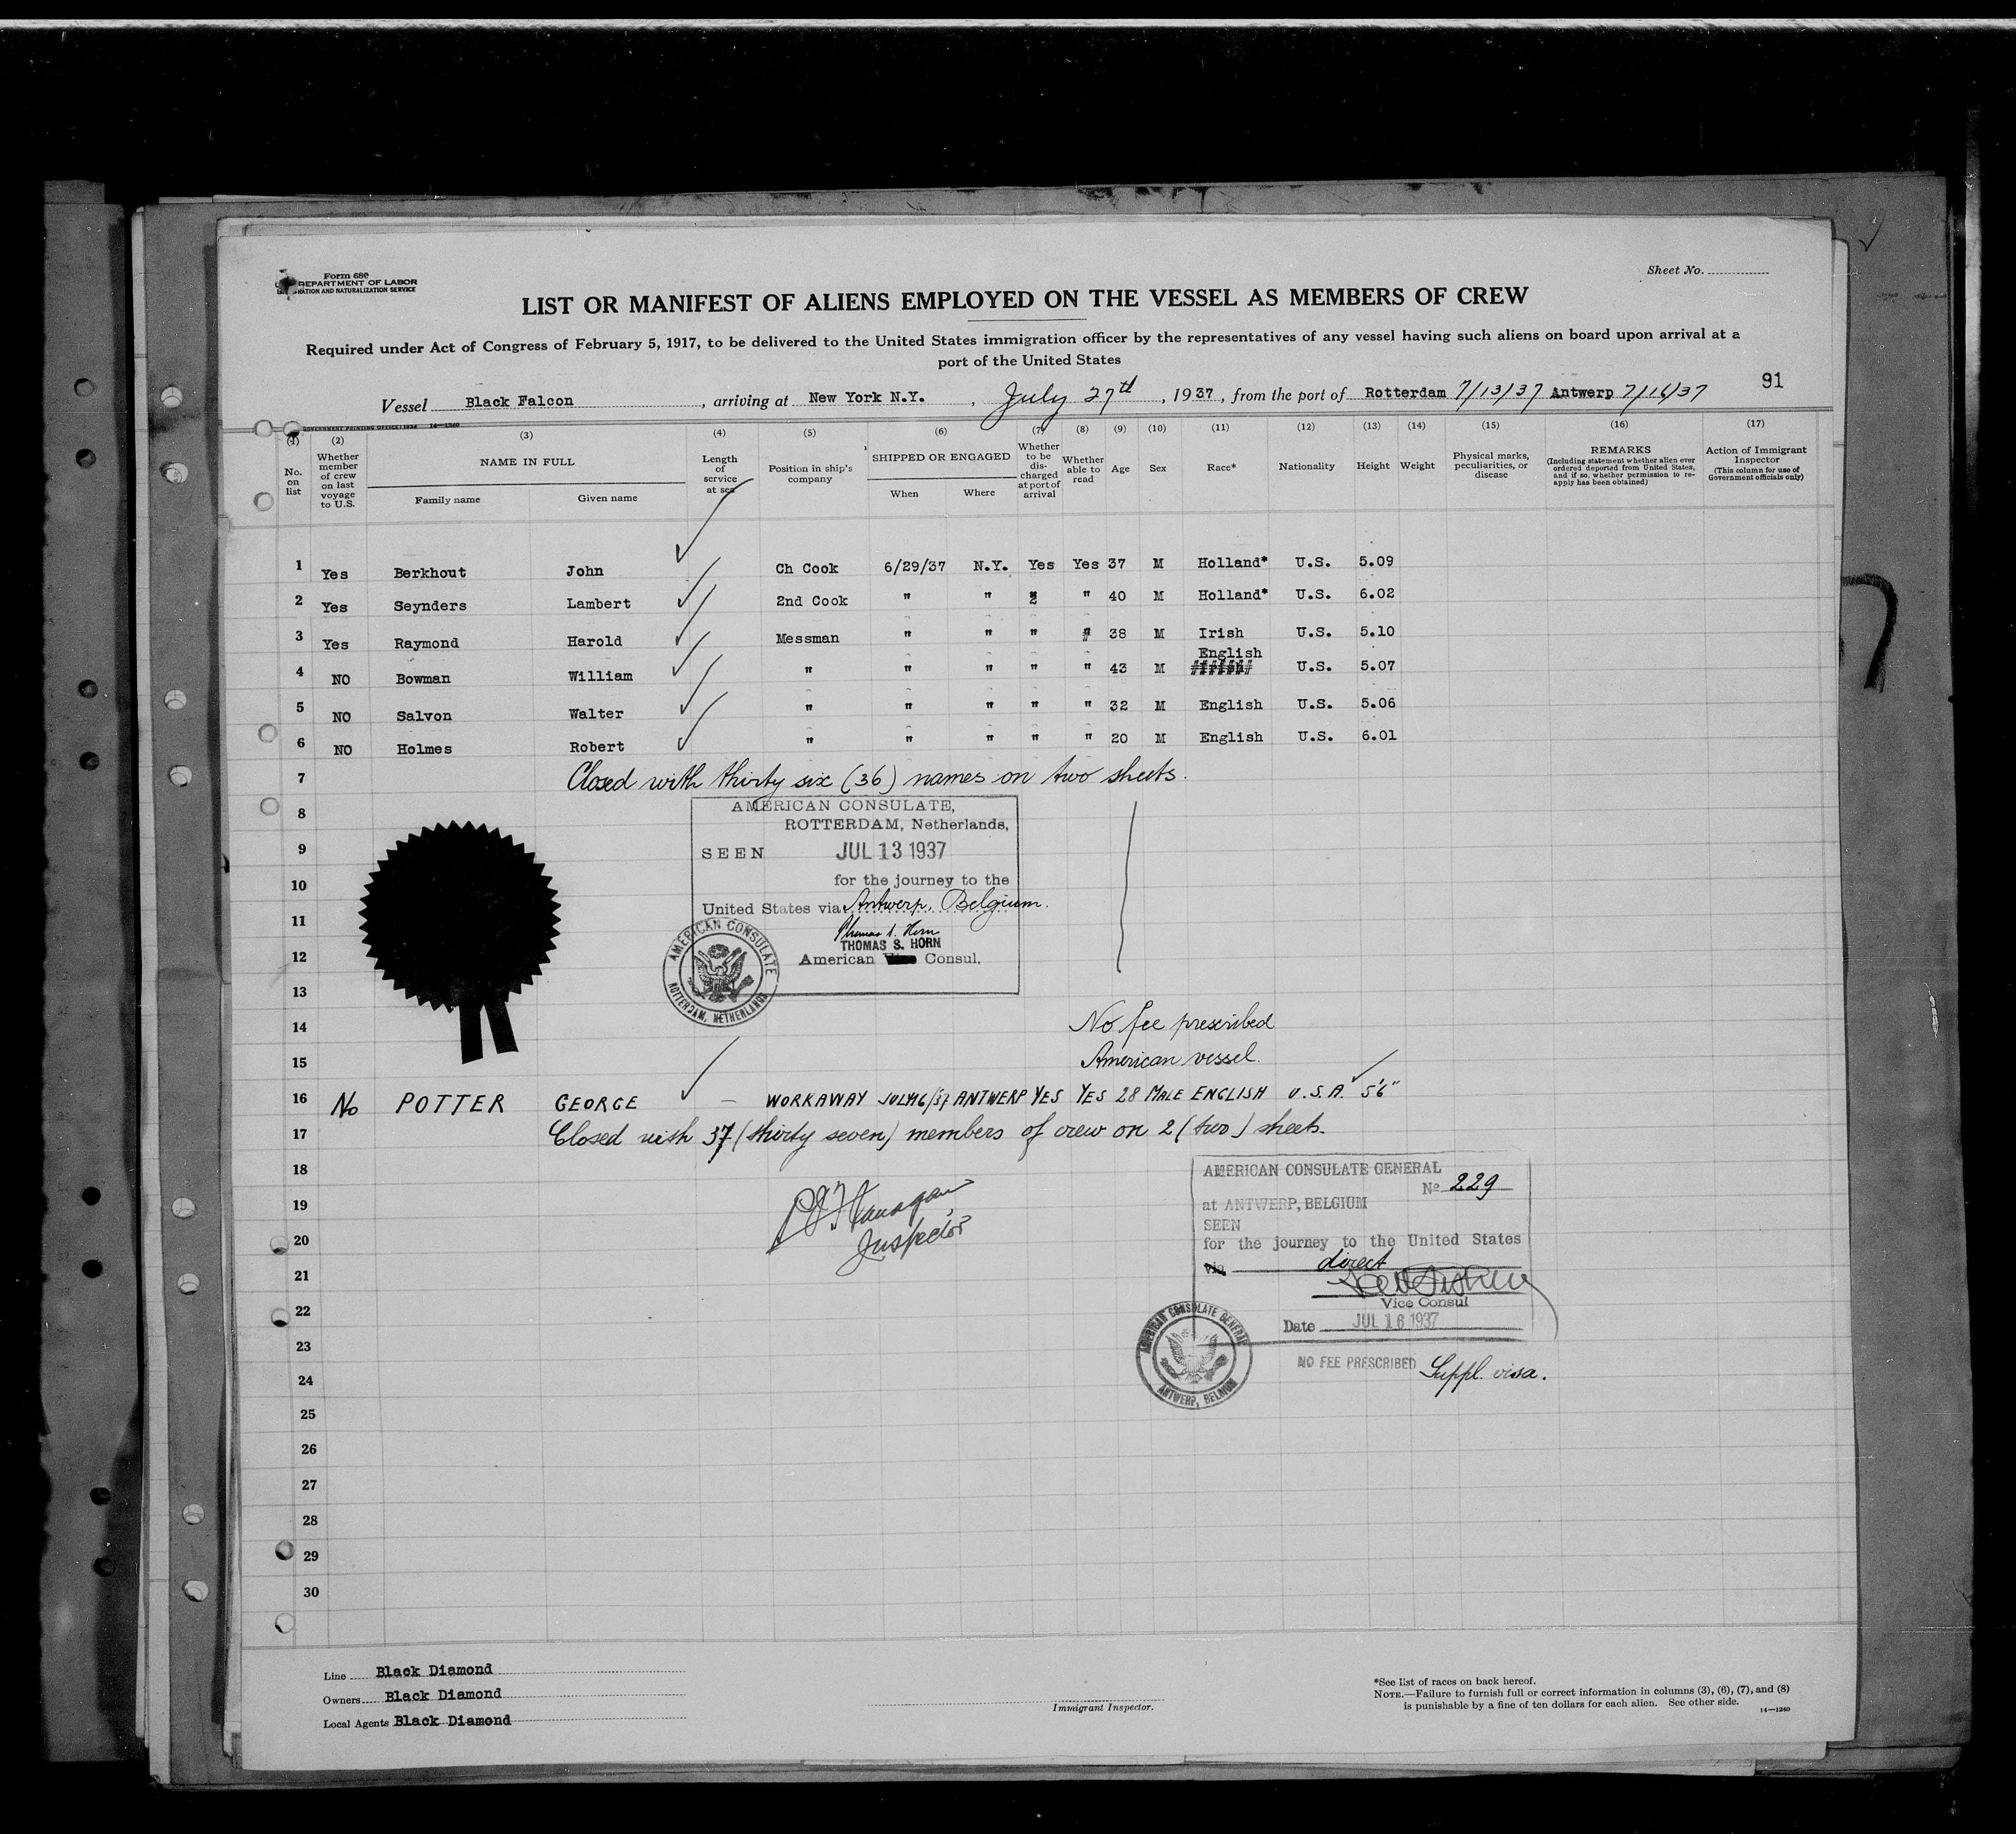 Form 680
DEPARTMENT OF LABOR
RATION AND NATURALIZATION SERVICE
Sheet No.
LIST OR MANIFEST OF ALIENS EMPLOYED ON THE VESSEL AS MEMBERS OF CREW
Required under Act of Congress of February 5, 1917, to be delivered to the United States immigration officer by the representatives of any vessel having such aliens on board upon arrival at a
port of the United States
91
Vessel Black Falcon, arriving at New York N.Y., July 27th, 1937, from the port of Rotterdam 7/13/37 Antwerp 7/16/37
GOVERNMENT PRINTING OFFICE: 1934 14—1240
(1) (2) (3) (4) (5) (6) (7) (8) (9) (10) (11) (12) (13) (14) (15) (16) (17)
No. on list
Whether member of crew on last voyage to U.S.
NAME IN FULL
Family name
Given name
Length of service at sea
Position in ship's company
SHIPPED OR ENGAGED
When
Where
Whether to be discharged at port of arrival
Whether able to read
Age
Sex
Race*
Nationality
Height
Weight
Physical marks, peculiarities, or disease
REMARKS
(Including statement whether alien ever ordered deported from United States, and if so, whether permission to reapply has been obtained)
Action of Immigrant Inspector
(This column for use of Government officials only)
1 Yes Berkhout John Ch Cook 6/29/37 N.Y. Yes Yes 37 M Holland* U.S. 5.09
2 Yes Seynders Lambert 2nd Cook " " " " 40 M Holland* U.S. 6.02
3 Yes Raymond Harold Messman " " " " 38 M Irish U.S. 5.10
English
4 NO Bowman William " " " " " 43 M Irish U.S. 5.07
5 NO Salvon Walter " " " " " 32 M English U.S. 5.06
6 NO Holmes Robert " " " " " 20 M English U.S. 6.01
7 Closed with thirty six (36) names on two sheets.
8
AMERICAN CONSULATE,
ROTTERDAM, Netherlands,
9
SEEN JUL 13 1937
10
for the journey to the
11
United States via Antwerp, Belgium.
Thomas S. Horn
THOMAS S. HORN
12
American Vice Consul.
AMERICAN CONSULATE
ROTTERDAM, NETHERLANDS
13
14 No fee prescribed
15 American vessel.
16 No POTTER GEORGE — WORKAWAY JULY 16/37 ANTWERP YES YES 28 MALE ENGLISH U.S.A. 5'6"
17 Closed with 37 (thirty seven) members of crew on 2 (two) sheets.
18
AMERICAN CONSULATE GENERAL
No 229
19
at ANTWERP, BELGIUM
SEEN
20
Inspector
for the journey to the United States
21
via direct
22
Vice Consul
Date JUL 16 1937
AMERICAN CONSULATE GENERAL
ANTWERP, BELGIUM
23
NO FEE PRESCRIBED Suppl. visa.
24
25
26
27
28
29
30
Line Black Diamond
Owners Black Diamond
Local Agents Black Diamond
Immigrant Inspector.
*See list of races on back hereof.
NOTE.—Failure to furnish full or correct information in columns (3), (6), (7), and (8)
is punishable by a fine of ten dollars for each alien. See other side.
14—1240